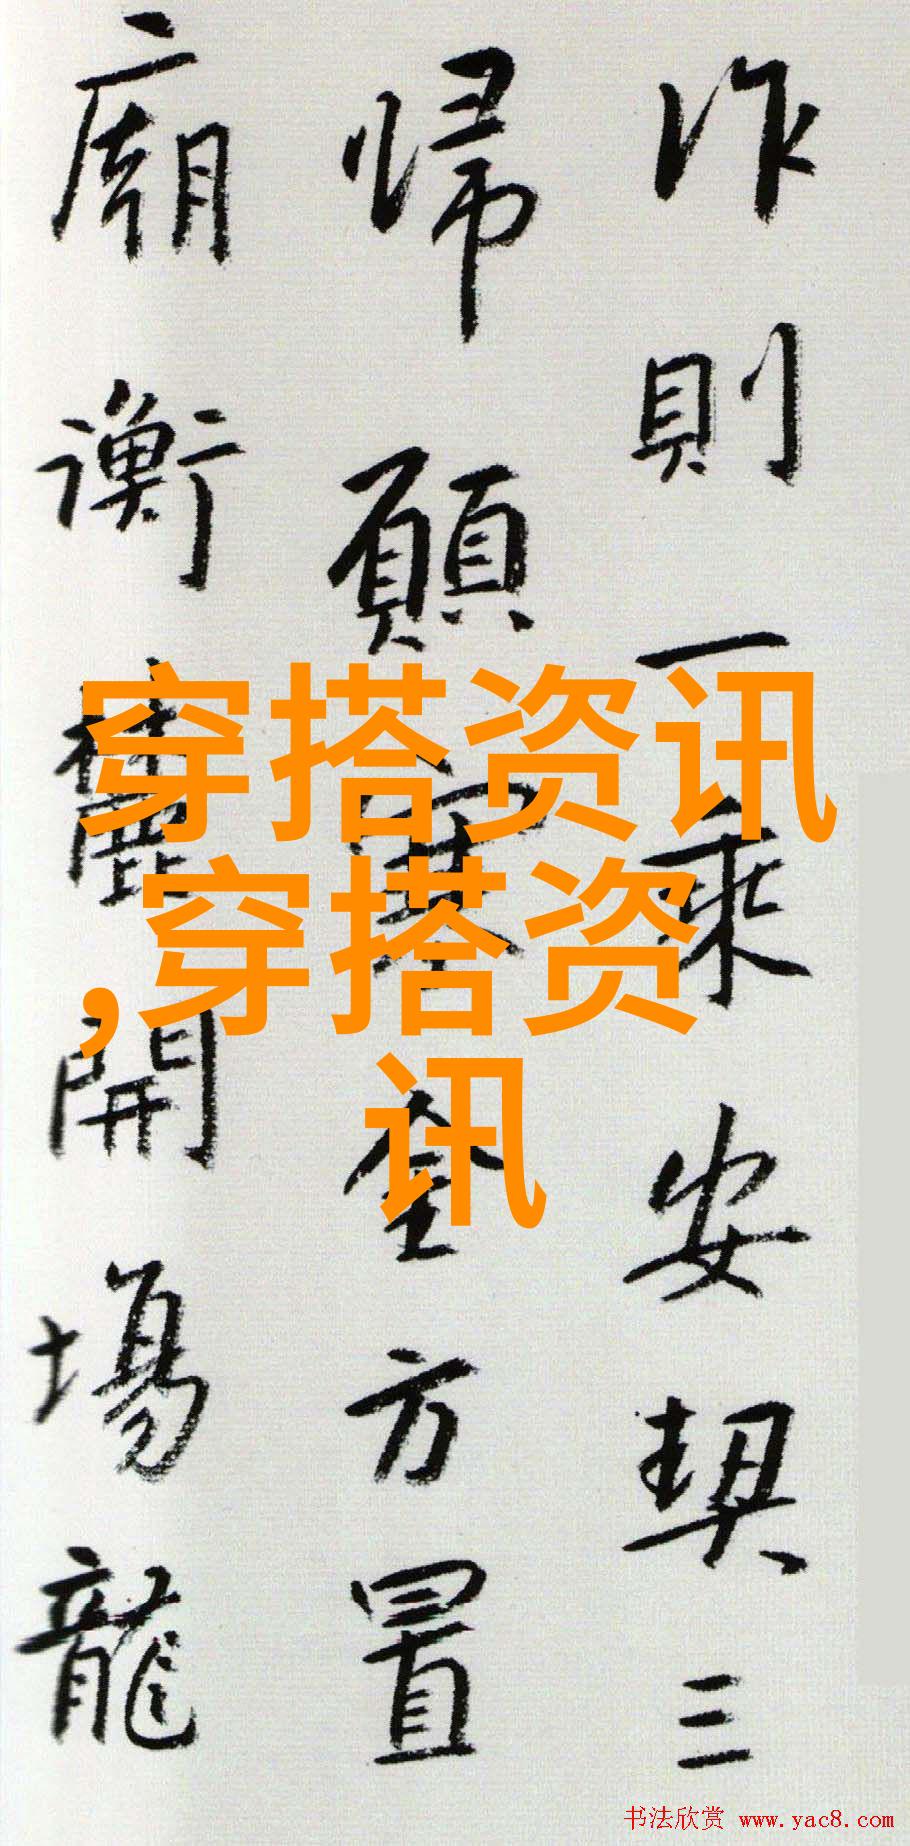 作則一乘安契三
歸願寞登方置
廟衡麓開場龍
穿搭资讯
,穿搭资
讯
书法欣赏 www.yac8.com